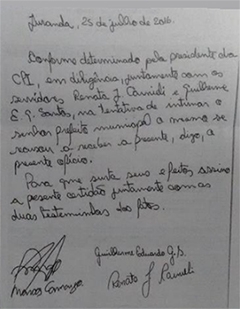 Juranda, 25 de julho de 2016.
Conforme determinado pela presidente da
CPI, em diligência, juntamente com os
servidores Renata J Cainelli e Guilherme
E. G. Santos, na tentativa de intimar o
senhor prefeito municipal o mesmo se
recusou a receber a presente, digo, o
presente ofício.
Para que surta seus efeitos assino
a presente certidão juntamente com as
duas testemunhas dos fatos.
Guilherme Eduardo G.S.
Marcos
Renata J Cainelli